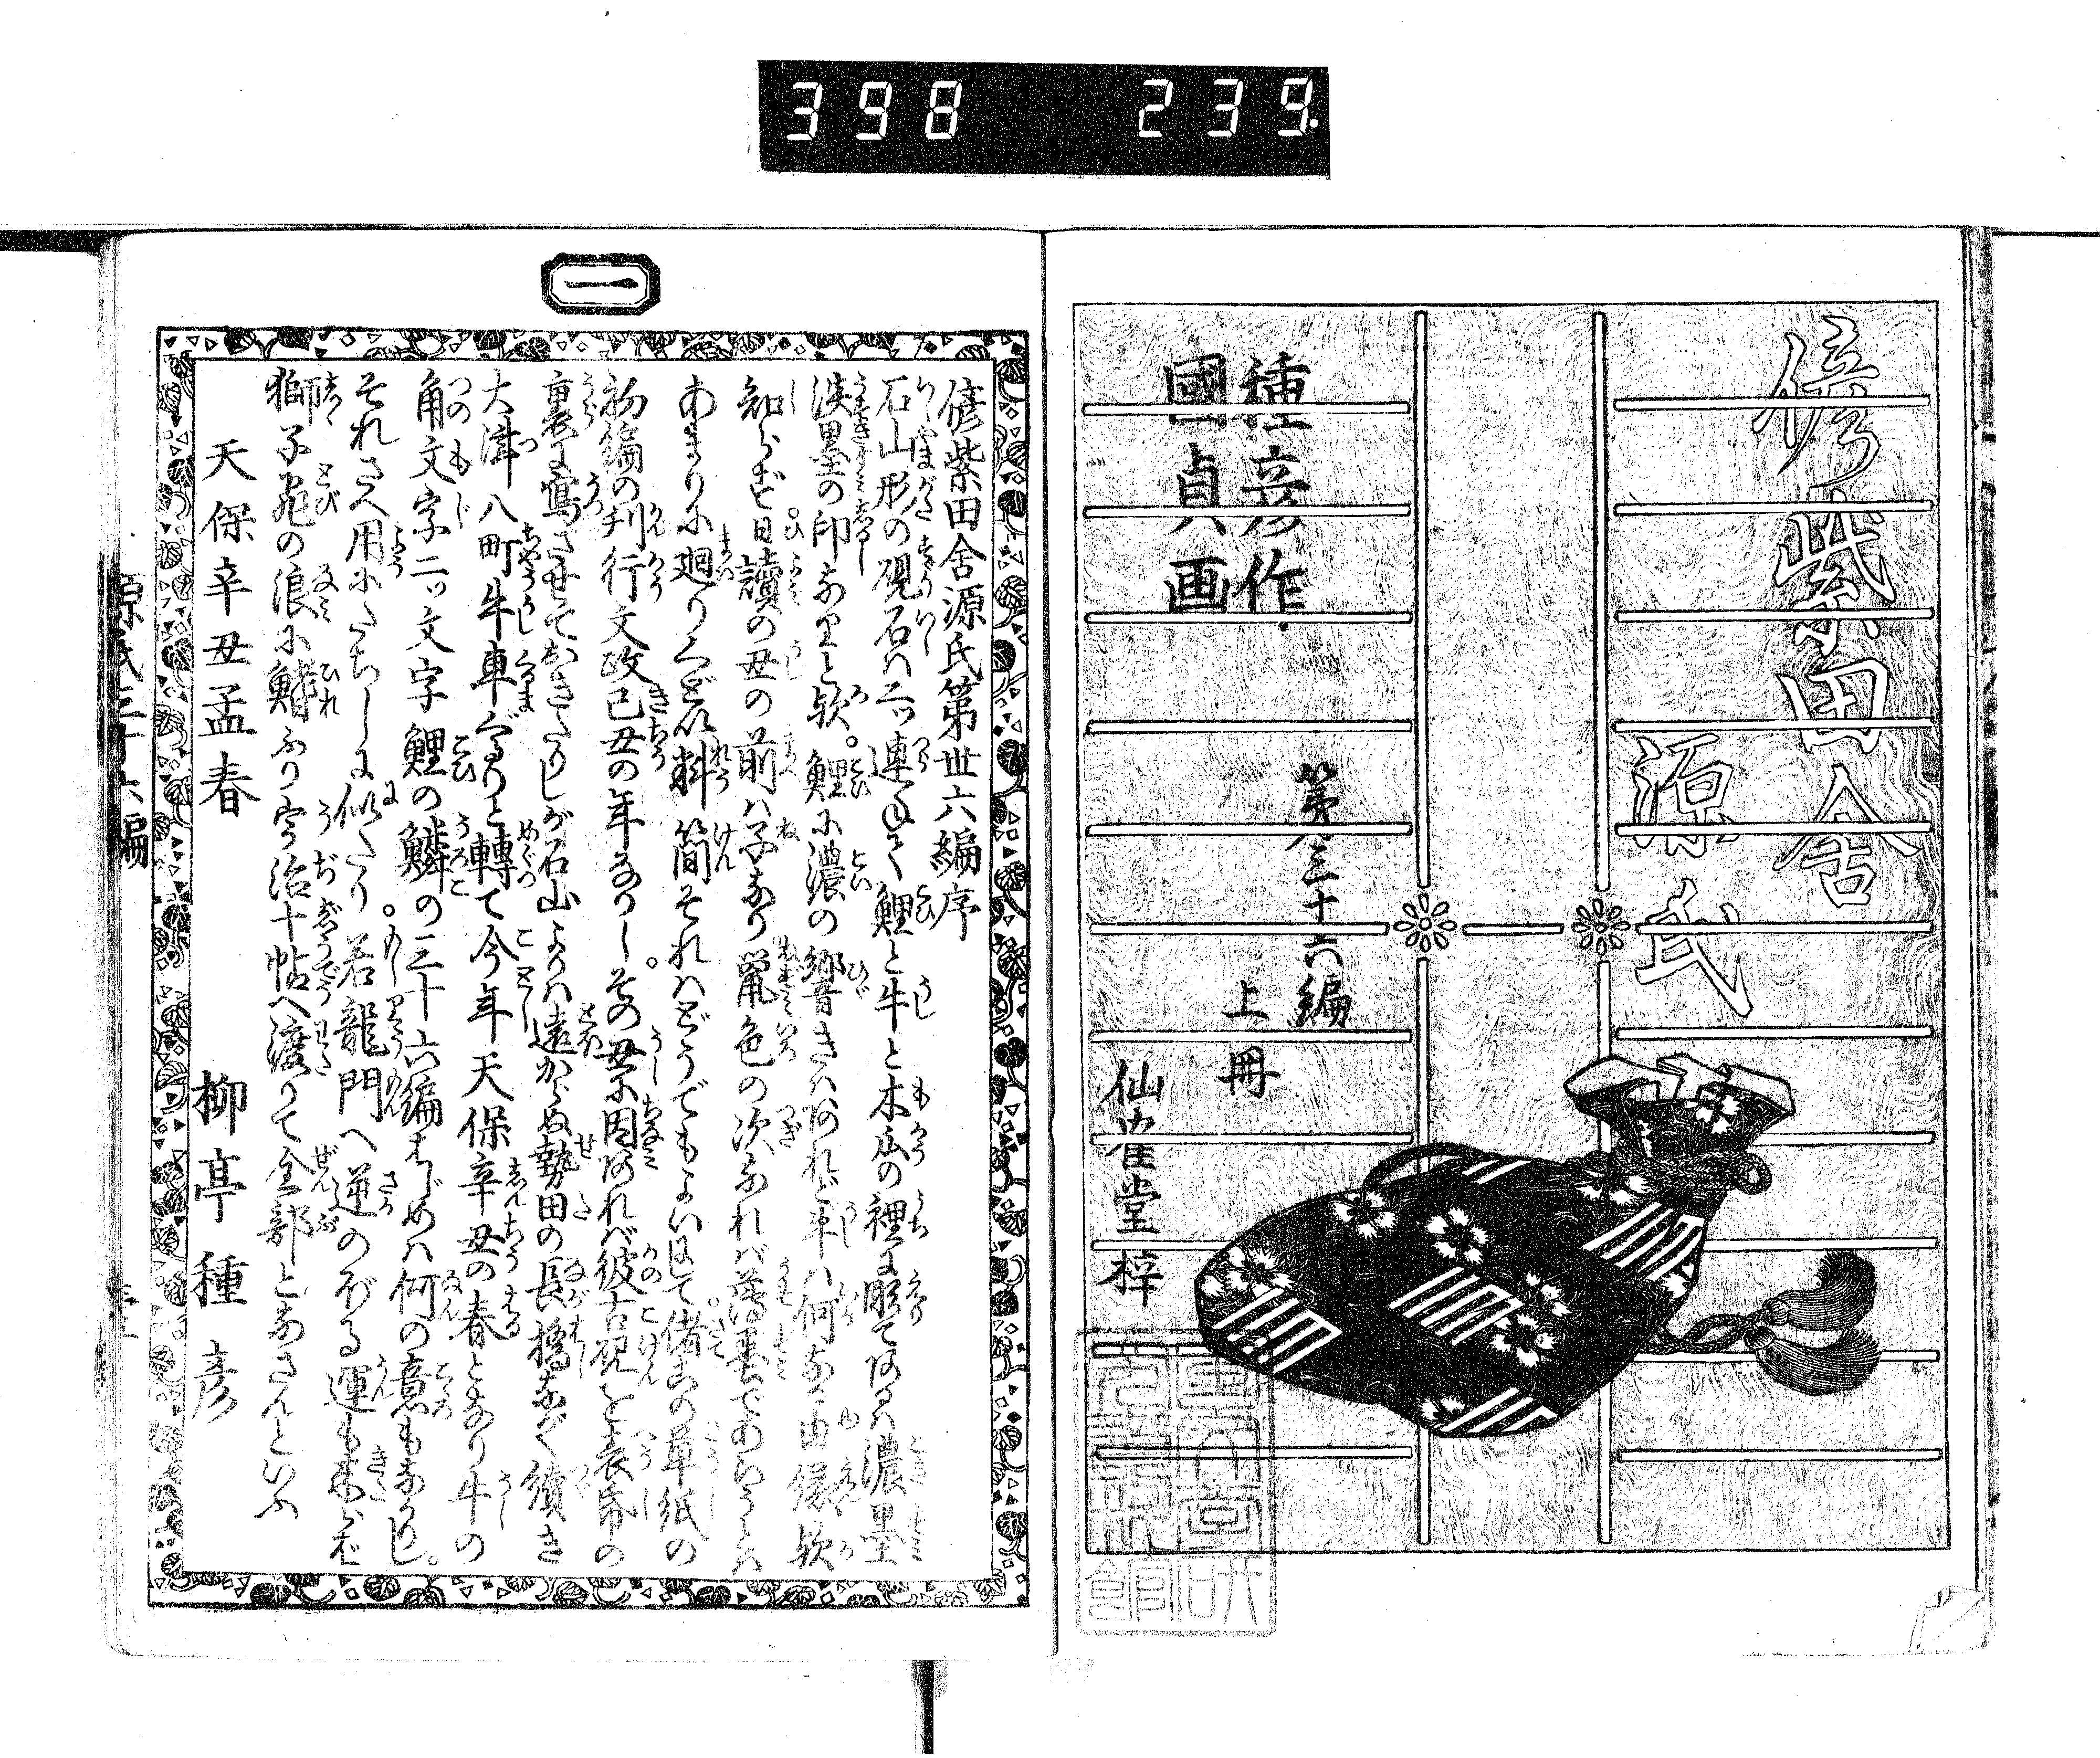 398 239
偐紫田舎
源氏
種彦作
國貞画
第三十六編
上冊
仙雀堂梓
一
偐紫田舎源氏第丗六編序
石山形の硯石ハ二ツ連ねて鯉と牛と木瓜の裡に彫てあるハ濃墨
淡墨の印なりと歟。鯉ハ濃の響きハあれど牛ハ何なる由縁歟
知らず。日讀の丑の前ハ子なり鼠色の次なれバ薄墨であらうとハ
あまりに廻りくどい料簡それハどうでもよいにして偖此草紙の
初編の刊行文政己丑の年なりし。その丑に因あれバ彼古硯を表帋の
裏に寫させておきたりしが石山よりハ遠からぬ勢田の長橋ながく續き
大津八町牛車ぐるりと轉て今年天保辛丑の春となり牛の
角文字二ツ文字鯉の鱗の三十六編はじめハ何の意もなかりし。
それさへ用にたちしに似たり。若龍門へ逆のぼる運も来らバ
獅子飛の浪に鰭ふり宇治十帖へ渡りて全部となさんといふ
天保辛丑孟春
柳亭種彦
源氏三十六編